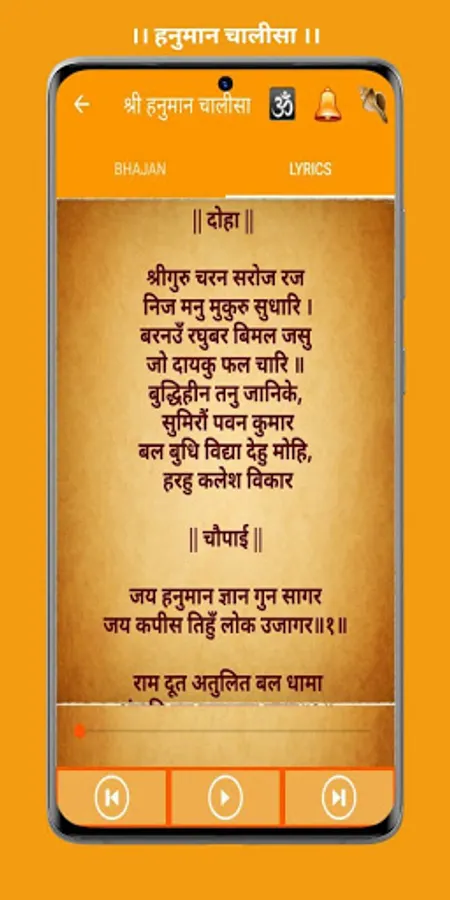 ।। हनुमान चालीसा ।।
श्री हनुमान चालीसा ॐ
BHAJAN LYRICS
|| दोहा ||
श्रीगुरु चरन सरोज रज
निज मनु मुकुरु सुधारि ।
बरनउँ रघुबर बिमल जसु
जो दायकु फल चारि ॥
बुद्धिहीन तनु जानिके,
सुमिरौं पवन कुमार
बल बुधि विद्या देहु मोहि,
हरहु कलेश विकार
|| चौपाई ||
जय हनुमान ज्ञान गुन सागर
जय कपीस तिहुँ लोक उजागर॥१॥
राम दूत अतुलित बल धामा